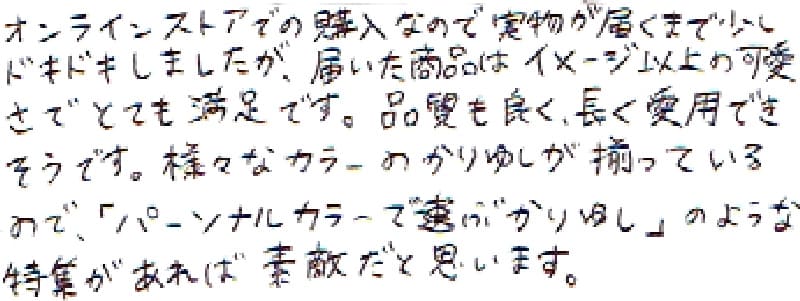 オンラインストアでの購入なので実物が届くまで少し
ドキドキしましたが、届いた商品はイメージ以上の可愛
さでとても満足です。品質も良く、長く愛用でき
そうです。様々なカラーのかりゆしが揃っている
ので、「パーソナルカラーで選ぶかりゆし」のような
特集があれば素敵だと思います。